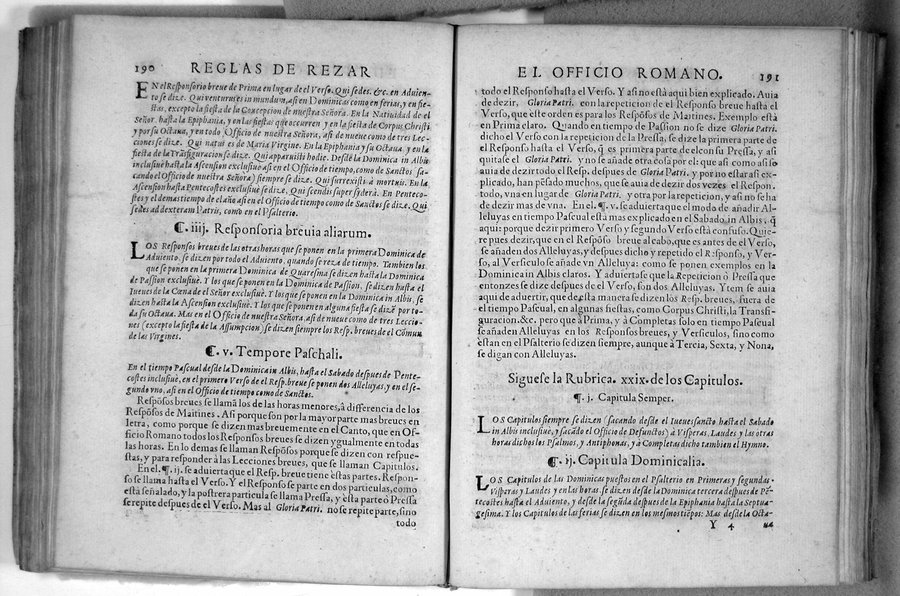 190 REGLAS DE REZAR
EN el Responsorio breue de Prima en lugar de el Verso. Qui sedes. &c. en Aduien-
to se dize. Qui venturus es in mundum, asi en Dominicas como en ferias, y en fie-
stas, excepto la fiesta de la Concepcion de nuestra Señora. En la Natiuidad de el
Señor hasta la Epiphania, y en las fiestas que occurren y en la fiesta de Corpus Christi
y por su Octaua, y en todo Officio de nuestra Señora, asi de nueue como de tres Lec-
ciones se dize. Qui natus es de Maria Virgine. En la Epiphania y su Octaua y en la
fiesta de la Trãsfiguracion se dize. Qui apparuisti hodie. Desde la Dominica in Albis
inclusiuè hasta la Ascension exclusiuè asi en el Officio de tiempo, como de Sanctos (sa-
cando el Officio de nuestra Señora) siempre se dize. Qui surrexisti à mortuis. En la
Ascension hasta Pentecostes exclusiuè se dize. Qui scendis super sydera. En Penteco-
stes y el demas tiempo de el año asi en el Officio de tiempo como de Sanctos se dize. Qui
sedes ad dexteram Patris, como en el Psalterio.
¶. iiij. Responsoria breuia aliarum.
LOS Responsos breues de las otras horas que se ponen en la primera Dominica de
Aduiento, se dizen por todo el Aduiento, quando se reza de tiempo. Tambien los
que se ponen en la primera Dominica de Quaresma se dizen hasta la Dominica
de Passion exclusiuè. Y los que se ponen en la Dominica de Passion, se dizen hasta el
Iueues de la Cœna de el Señor exclusiuè. Y los que se ponen en la Dominica in Albis, se
dizen hasta la Ascension exclusiuè. Y los que se ponen en alguna fiesta se dizẽ por to-
da su Octaua. Mas en el Officio de nuestra Señora, asi de nueue como de tres Leccio-
nes (excepto la fiesta de la Assumpcion) se dizen siempre los Resp. breues de el Comũn
de las Virgines.
¶. v. Tempore Paschali.
En el tiempo Pascual desde la Dominica in Albis, hasta el Sabado despues de Pente-
costes inclusiuè, en el primero Verso de el Resp. breue se ponen dos Alleluyas, y en el se-
gundo vno, asi en el Officio de tiempo como de Sanctos.
Respõsos breues se llamã los de las horas menores, à diferencia de los
Respõsos de Maitines. Asi porque son por la mayor parte mas breues en
letra, como porque se dizen mas breuemente en el Canto, que en Of-
ficio Romano todos los Responsos breues se dizen ygualmente en todas
las horas. En lo demas se llaman Responsos porque se dizen con respue-
stas, y para responder à las Lecciones breues, que se llaman Capitulos.
En el. ¶. ij. se aduierta que el Resp. breue tiene estas partes. Respon-
so se llama hasta el Verso. Y el Responso se parte en dos particulas, como
está señalado, y la postrera particula se llama Pressa, y esta parte ò Pressa
se repite despues de el Verso. Mas al Gloria Patri. no se repite parte, sino
todo
EL OFFICIO ROMANO. 191
todo el Responso hasta el Verso. Y asi no està aqui bien explicado. Auia
de dezir, Gloria Patri. con la repeticion de el Responso breue hasta el
Verso, que este orden es para los Respõsos de Maitines. Exemplo està
en Prima claro. Quando en tiempo de Passion no se dize Gloria Patri.
dicho el Verso con la repeticion de la Pressa, se dize la primera parte de
el Responso hasta el Verso, q̃ es primera parte de el con su Pressa, y asi
quitase el Gloria Patri. y no se añade otra cosa por el: que asi como asi se
auia de dezir todo el Resp. despues de Gloria Patri. y por no estar asi ex-
plicado, han pesado muchos, que se auia de dezir dos vezes el Respon.
todo, vna en lugar de Gloria Patri. y otra por la repeticion, y asi no se ha
de dezir mas de vna. En el. ¶. v. se aduierta que el modo de añadir Al-
leluyas en tiempo Pascual està mas explicado en el Sabado in Albis, q̃
aqui: porque dezir primero Verso y segundo Verso està confuso. Quie-
re pues dezir, que en el Respõso breue al cabo, que es antes de el Verso,
se añaden dos Alleluyas, y despues dicho y repetido el Responso, y Ver-
so, al Versiculo se añade vn Alleluya: como se ponen exemplos en la
Dominica in Albis claros. Y aduiertase que la Repeticion ò Pressa que
entonzes se dize despues de el Verso, son dos Alleluyas. Ytem se auia
aqui de aduertir, que desta manera se dizen los Resp. breues, fuera de
el tiempo Pascual, en algunas fiestas, como Corpus Christi, la Transfi-
guracion. &c. pero que à Prima, y à Completas solo en tiempo Pascual
se añaden Alleluyas en los Responsos breues, y Versiculos, sino como
estan en el Psalterio se dizen siempre, aunque à Tercia, Sexta, y Nona,
se digan con Alleluyas.
Siguese la Rubrica. xxix. de los Capitulos.
¶. j. Capitula Semper.
LOS Capitulos siempre se dizen (sacando desde el Iueues sancto hasta el Sabado
in Albis inclusiuè, y sacãdo el Officio de Defunctos) à Visperas, Laudes y las otras
horas dichos los Psalmos, y Antiphonas, y à Completas dicho tambien el Hymno.
¶. ij. Capitula Dominicalia.
LOS Capitulos de las Dominicas puestos en el Psalterio en Primeras y segundas
Visperas y Laudes y en las horas se dizen desde la Dominica tercera despues de Pẽ-
tecostes hasta el Aduiento, y desde la segũda despues de la Epiphania hasta la Septua-
gesima. Y los Capitulos de las ferias se dizen en los mesmos tiẽpos: Mas desde la Octa-
Y 4 ua